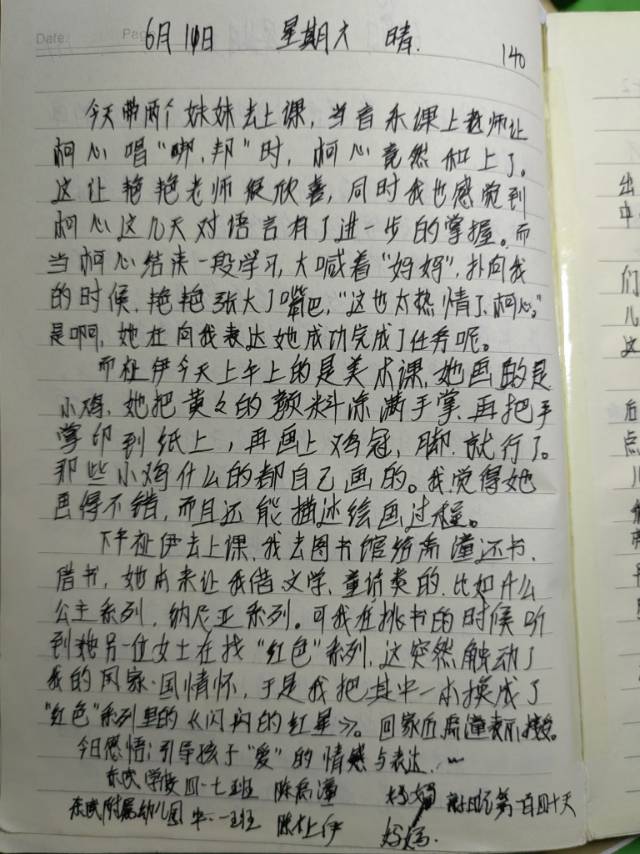 Date:
Pag
6月14日 星期六 晴.
140
今天带两个妹妹去上课，当音乐课上老师让
柯心唱“咿，邦”时，柯心竟然和上了。
这让艳艳老师很欣喜，同时我也感觉到
柯心这几天对语言有了进一步的掌握。而
当柯心结束一段学习，大喊着“妈妈”，扑向我
的时候，艳艳张大了嘴巴，“这也太热情了，柯心。”
是啊，她在向我表达她成功完成了任务呢。
而祉伊今天上午上的是美术课，她画的是
小鸡，她把黄色的颜料涂满手掌，再把手
掌印到纸上，再画上鸡冠，脚，就行了。
那些小鸡什么的都自己画的。我觉得她
画得不错，而且还能描述绘画过程。
下午祉伊去上课，我去图书馆给禹潼还书、
借书，她本来让我借文学、童话类的，比如什么
公主系列，纳尼亚系列。可我在挑书的时候听
到她另一位女士在找“红色”系列，这突然触动了
我的风家国情怀，于是我把其中一本换成了
“红色”系列里的《闪闪的红星》。回家后禹潼表示接受。
今日感悟：引导孩子“爱”的情感与表达.
东 学校四·七班 陈禹潼 妈妈 日记第一百四十天
东 附属幼儿园 中·一班 陈祉伊 妈妈
出
中
们
儿
这
后
点